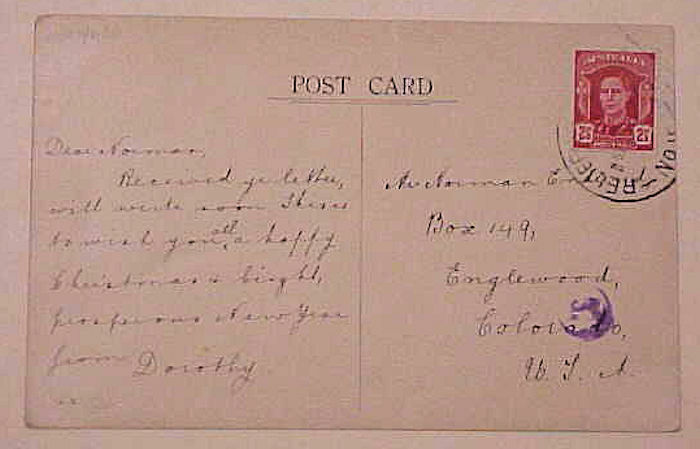 POST CARD
AUSTRALIA
2½ 2½
Dear Norman,
Received yr letter,
will write soon. This is
to wish you all a happy
Christmas & bright,
prosperous New Year
from Dorothy
xx
Mr Norman
Box 149,
Englewood,
Colorado,
U. S. A.